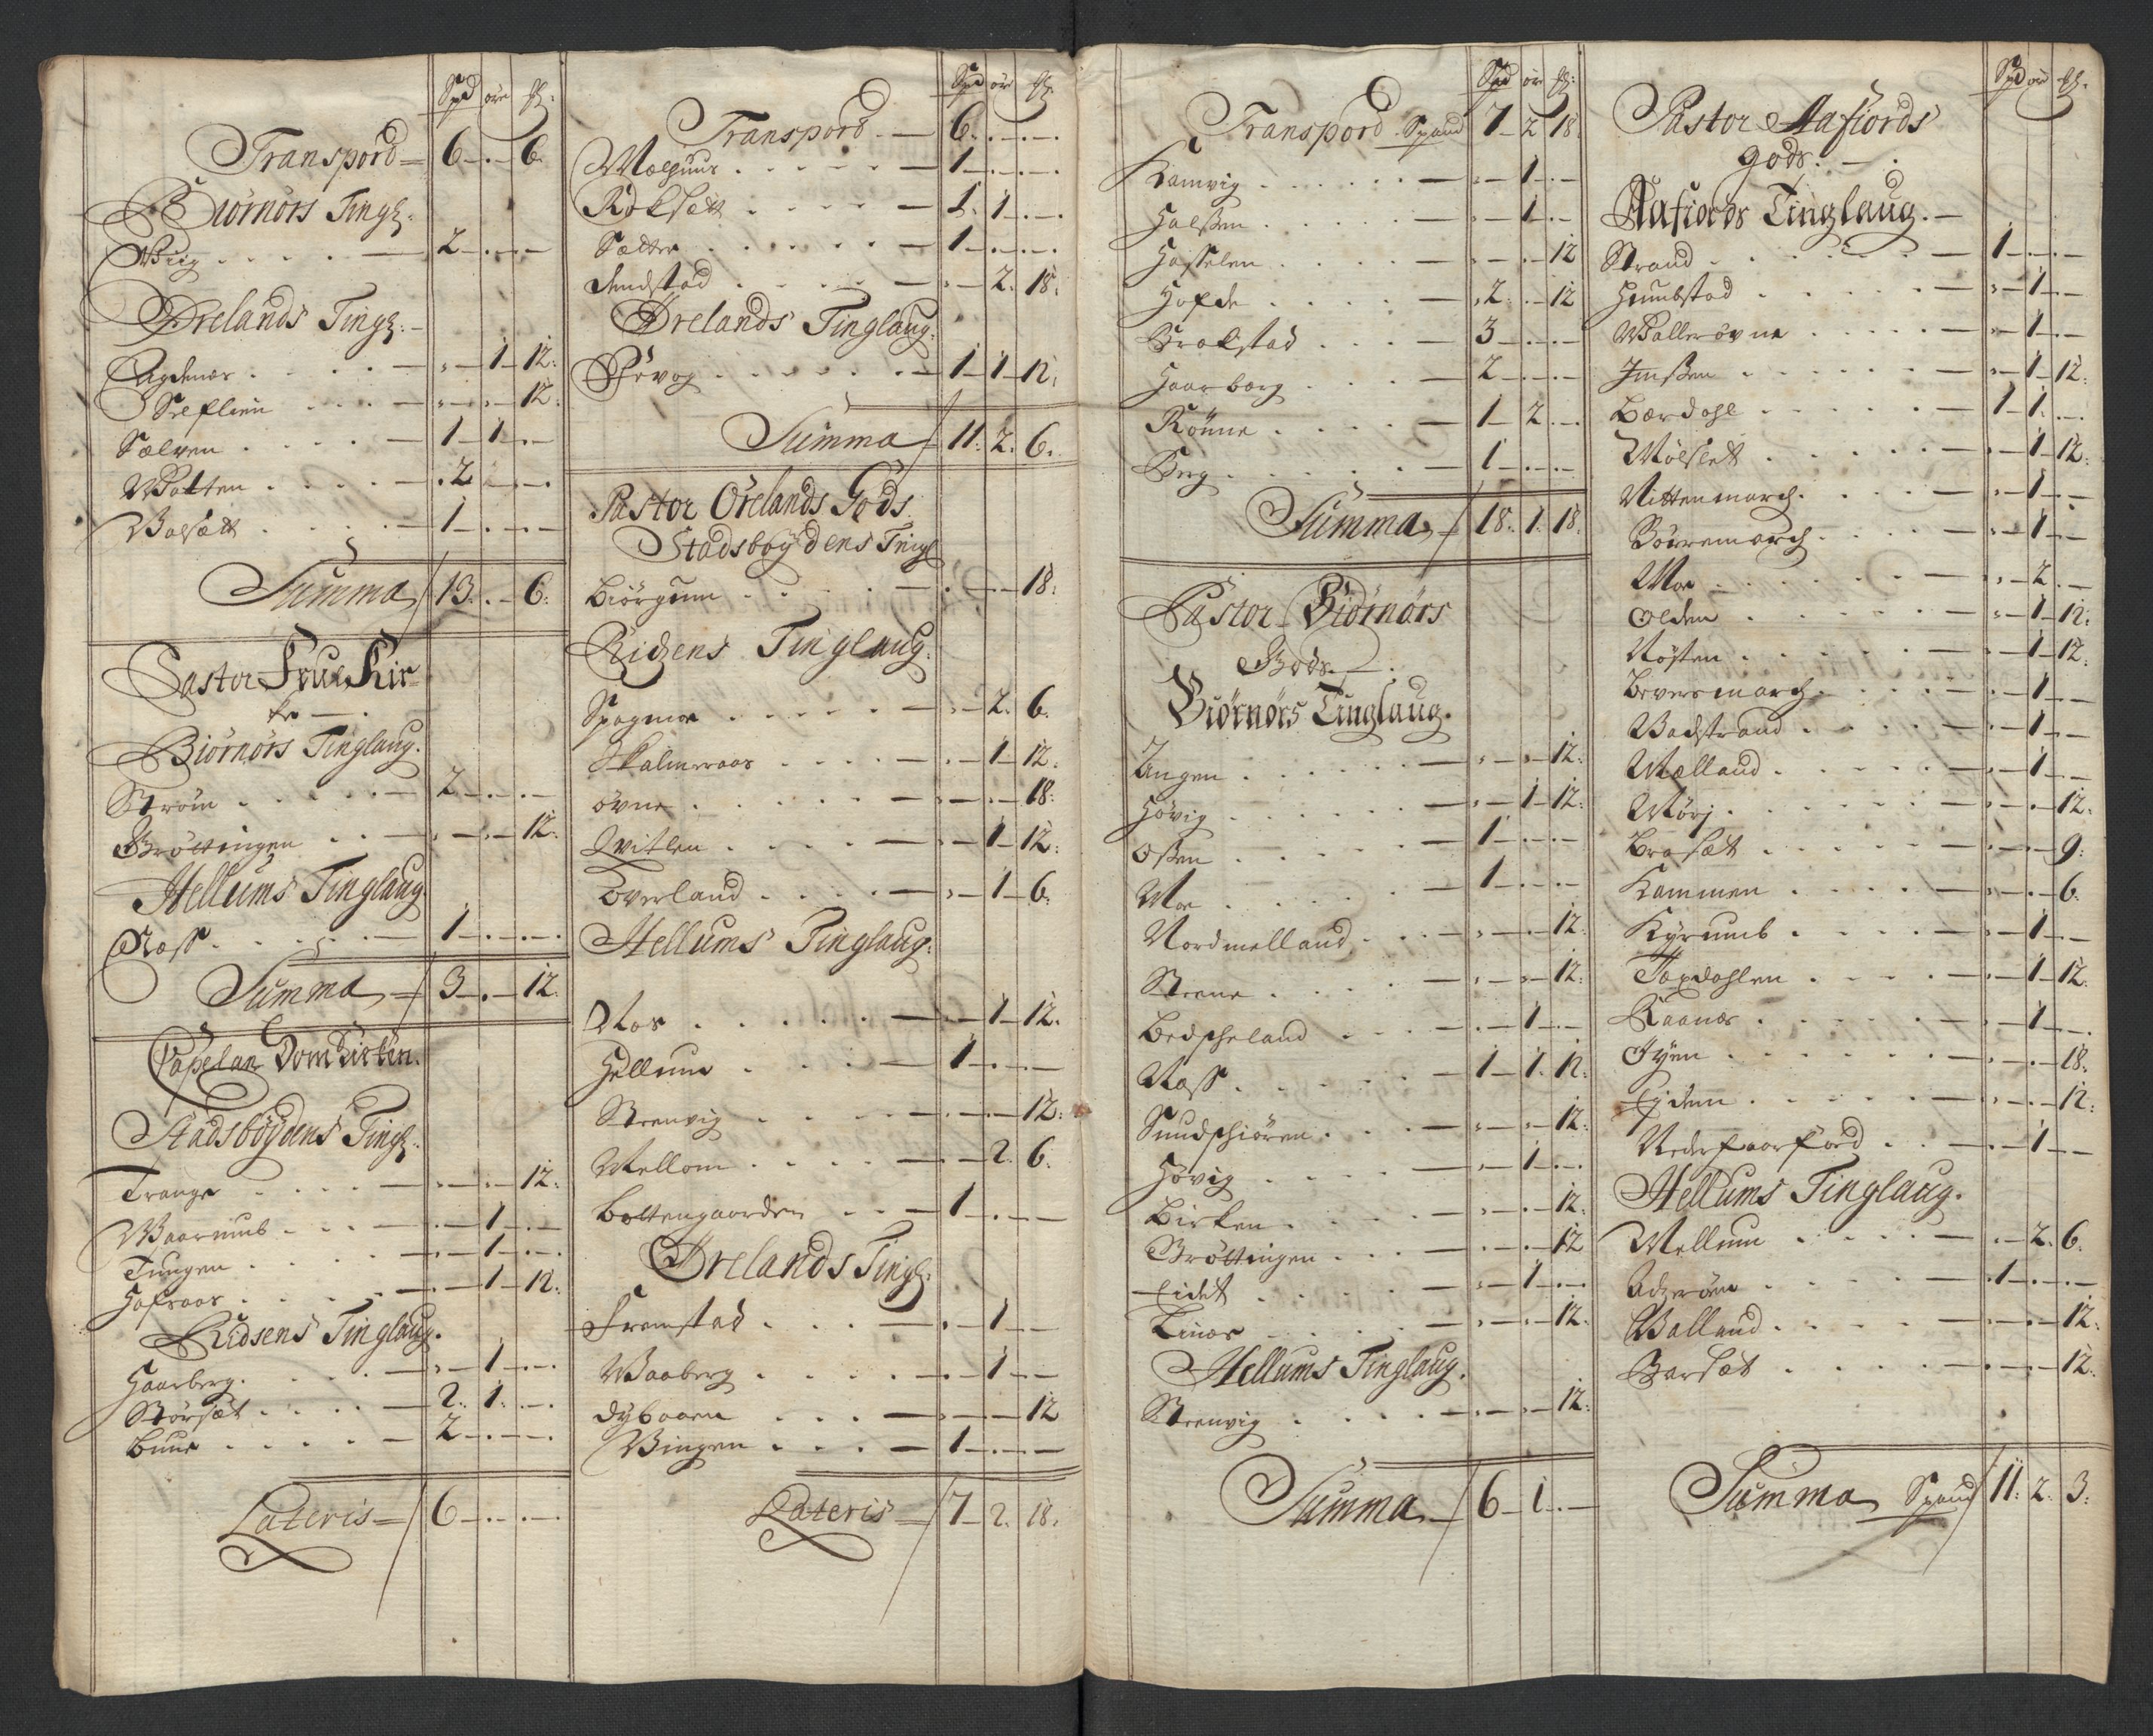 Spd øre ß:
Transpord 6 - . - 6.
Biørnørs Tingl:
Wiig . . . . . 2 - . - . -
Ørelands Tingl: -
Agdenæs . . . . - 1 - 12:
. . . . 12:
Sælven . . . . 1 - 1 - . -
Watten . . . . . 2 . - . -
Balsætt . . . . 1 - . - . -
Summa 13. . - 6:
Pastor Frue Kir-
ke - .
Biørnørs Tinglaug.
Strøm . . . . . 2 - . - . -
Grøttingen . . - . - 12:
Hellums Tinglaug
Næss . . . . . 1 - . - . - .
Summa 3 - . - 12:
Capelan Domkirken.
Stadsbøydens Tingl:
Trange . . . . - . - 12:
Waarumb . . . - 1 - . -
Tungen . . . . - 1 - . - .
Hafraas . . . . - 1 - 12:
Ridsens Tinglaug.
Haarberg . . . . - 1 - . - .
Størsæt . . . . 2. 1. . - .
Buur . . . . . 2 - . - . - .
Lateris 6 - . - . - .
Spd øre ß:
Transpord - 6 . - . - .
Mælhuus . . . . . 1 - . - . - .
Rokseth . . . . 1. 1 - . - .
Sætter . . . . . . 1 - . - . - .
Lendstad . . . . . - 2. 18:
Ørelands Tinglaug.
Hovog . . . . . . 1 - 1 - 12:
Summa 11. 2. 6.
Pastor Ørelands Gods
Stadsbøydens Tingl
Biørgum . . . . . - . - 18:
Ridsens Tinglaug.
Spagmoe . . . . . - 2. 6.
Skalmeraas . . . . - 1 - 12.
øvne . . . . . . - . - 18:
Qvitlen . . . . . - 1 - 12:
Overland . . . . - 1 - 6:
Hellums Tinglaug:
Næs . . . . . . - 1 - 12.
Hellum . . . . 1 - . - . -
Strenvig . . . . - . - 12:
Mellom . . . . - 2. 6.
Bottengaarden . . 1 - . - . -
Ørelands Tingl:
Fremstad . . . . - 1 - . -
Waaberg . . . . . - 1 - . -
Dybaaen . . . . - . - 12
Wingen . . . . 1 - . - . -
Lateris 7 - 2. 18.
Spd øre ß:
Transpord Spand 7 - 2 - 18.
Hamvig . . . . . . - 1 - . -
Halssen . . . . . - 1 - . -
Hasselen . . . . - . - 12
Hofde . . . . . 2. . - 12
Brakstad . . . . 3 - . - . -
Haarbarg . . . . 2 - . - . -
Rønne . . . . . 1 - 2 . -
Berg . . . . . . 1 - . - . -
Summa 18. 1. 18.
Pastor Biørnørs
Gods. - .
Biørnørs Tinglaug.
Tungen . . . . . - . - 12:
Høvig . . . . . . - 1 - 12:
Ossen . . . . . 1 - . - . -
Moe . . . . . 1 - . - . -
Nordmelland . . . - . - 12:
Strene . . . . - . - 12:
Bedscheland . . . - 1 - . -
Næss . . . . . 1 - 1. 12:
Sundschiøren . . . - . - 12:
Høvig . . . . . - 1 - . -
Birken . . . . . - . - 12:
Grøttingen . . . - . - 12
Eidet . . . . . - 1 - . -
Linæs . . . . . - . - 12:
Hellums Tinglaug.
Strenvig . . . . - . - 12:
Summa 6 - 1 - . -
Spd øre ß:
Pastor Aafiords
gods: - .
Aafiords Tinglaug. -
Strand . . . . . 1 - . - . -
Humbstad . . . . - 1 - . -
Wallerøvne . . . . - 1 - . -
Imssen . . . . . - 1 - 12:
Bærdahl . . . . . 1 - 1. . -
Mølslett . . . . . - 1 - 12:
Nittenmarch . . . - 1 - . -
Børremarch . . . . - 1 - . -
Moe . . . . . . - 2 - . -
Olden . . . . . - 1 - 12:
Nøsten . . . . . - 1 - 12:
Beversmarch . . . . - 1 - . -
Badstrand . . . . - 1 - . -
Mælland . . . . . - 1 - . -
Mørj . . . . . . - . - 12.
Brasæt . . . . . - . - 9:
Hammen . . . . . - . - 6.
Hyrumb . . . . . - 1 - . -
Tørdahlen . . . . - 1 - 12.
Raanæs . . . . . - 1 - . -
. . . . . . - . - 18.
Eidem . . . . . - . - 12:
. . . - 1 - . -
Hellums Tinglaug.
Mellum . . . . . - 2. 6.
. . . . . 1 - . - . -
Balland . . . . . - . - 12.
Barsæt . . . . . - . - 12.
Summa Spand 11. 2. 3: